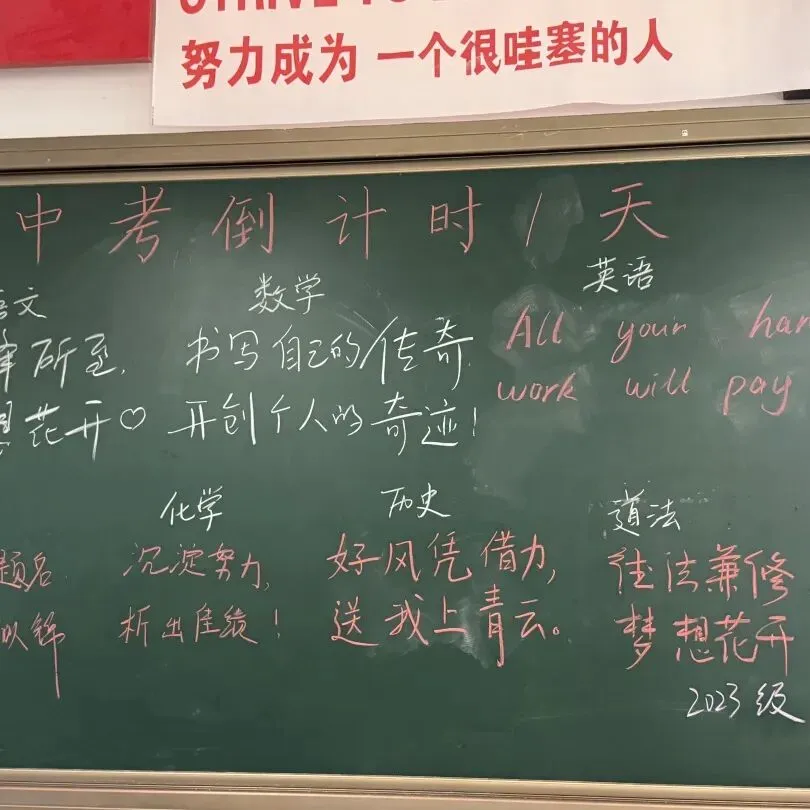 努力成为 一个很哇塞的人
中考倒计时1天
语文
所至,
花开♡
数学
书写自己的传奇
开创个人的奇迹!
英语
All your har
work will pay
题名
似锦
化学
沉淀努力,
析出佳绩!
历史
好风凭借力,
送我上青云。
道法
法兼修
梦想花开
2023级